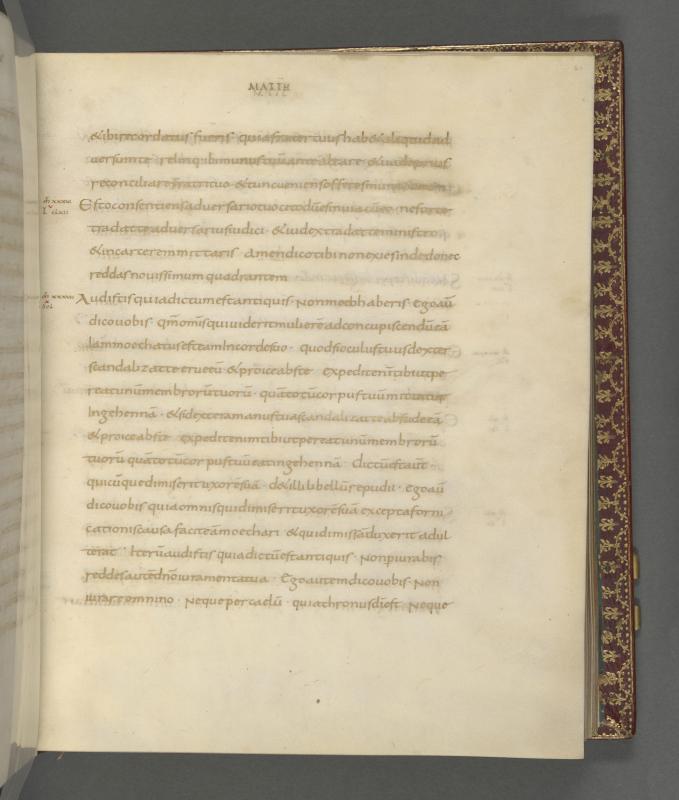 MATTH
&ibi recordatus fueris · quia frater tuus hab& aliquid ad
versum te · relinque ibi munus tuum ante altare · & vade prius
reconciliare fratri tuo · & tunc veniens offeres munus
Esto consentiens adversario tuo cito dū es in via cū eo · ne forte
tradat te adversarius iudici · & iudex tradat te ministro
& in carcerem mittaris · Amen dico tibi non exies inde donec
reddas novissimum quadrantem
Audistis quia dictum est antiquis · Non moechaberis · Ego aū
dico vobis · qm̄ omīs qui viderit mulierē ad concupiscendū eā
iam moechatus est eam in corde suo · quod si oculus tuus dexter
scandalizat te erue eū & proice abs te · expedit enī tibi ut pe
reat unū membrorū tuorū · quā totū corpus tuum
In gehennā · & si dextera manus tua scandalizat te abscide eā
& proice abs te · expedit enim tibi ut pereat unū membrorū
tuorū quā totū corpus tuū eat in gehennā · Dictū est aūt
quicūque dimiserit uxorē suā · d& illi libellū repudii · Ego aū
dico vobis quia omnis qui dimiserit uxorē suā excepta forni
cationis causa facit eā moechari · & qui dimissā duxerit adul
terat · Iterū audistis quia dictū est antiquis · Non periurabis
reddes autē dn̄o iuramenta tua · Ego autem dico vobis · Non
iurare omnino · Neque per caelū · quia thronus dī est · Neque